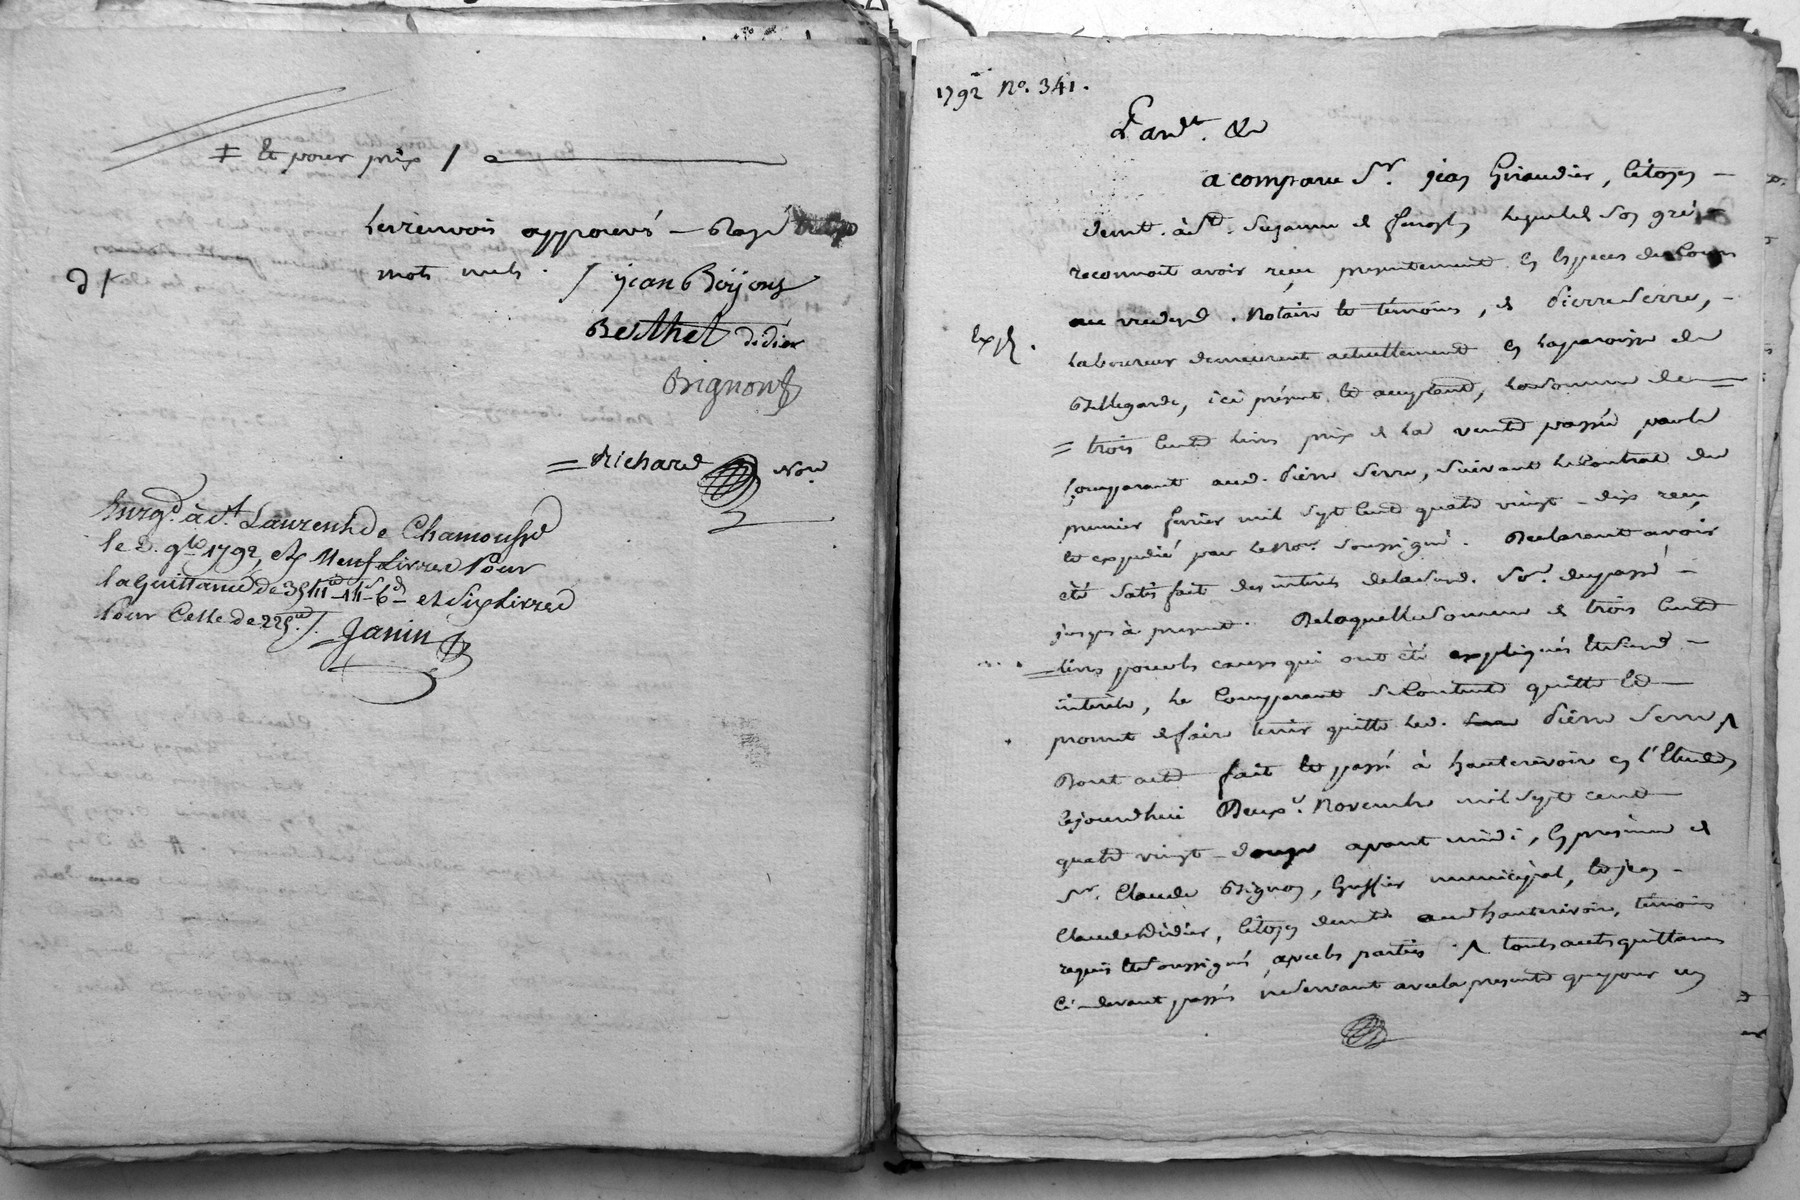 ‡ Et pour prix /
Les renvois approuvés — Rayé
mots nuls . / jean Bérjons
Berthet didier
Brignonf
= Richard Nore
Enrgd. à St Laurent de Chamousset
le 2. 9bre 1792, Neuf Livres pour
la quittance de et Six Livres
pour Celle de 225 #. Janin
1792 No. 341.
L'an dt. &c
a comparu Sr. jean Giraudier, citoyen —
demt. à St. Suzanne de lequel de son gré
reconnoit avoir reçu presentement en Especes de Cours
au vu dud. Notaire et témoins, de Pierre Serre, —
Exp.
Laboureur demeurant actuellement en la paroisse de
Bellegarde, ici présent et acceptant, la somme de
= trois Cent livres prix de la vente passée par le
Comparant aud. Pierre Serre, suivant le Contrat du
premier fevrier mil sept Cent quatre vingt - dix reçu
et expedié par le Nore. soussigné. Declarant avoir
été satisfait des interets de lad. passé —
jusques à present. De laquelle somme de trois Cent
livres pour les causes qui ont été expliqués
interêts, le Comparant se Contente quitte et —
promet de faire tenir quitte led. Pierre Serre ʌ
Dont acte fait et passé à hauterivoire en l'Etude
Cejourdhui Deux. Novembre mil sept cent —
quatre vingt - douze avant midi, En presence de
Sr. Claude Brignon, Greffier municipal, et jean -
Claude Didier, Citoyen demt. aud hauterivoire, temoins
requis et soussignés avec les parties . ʌ toutes autres quittances
Ci - devant passés ne servant avec la presente que pour un